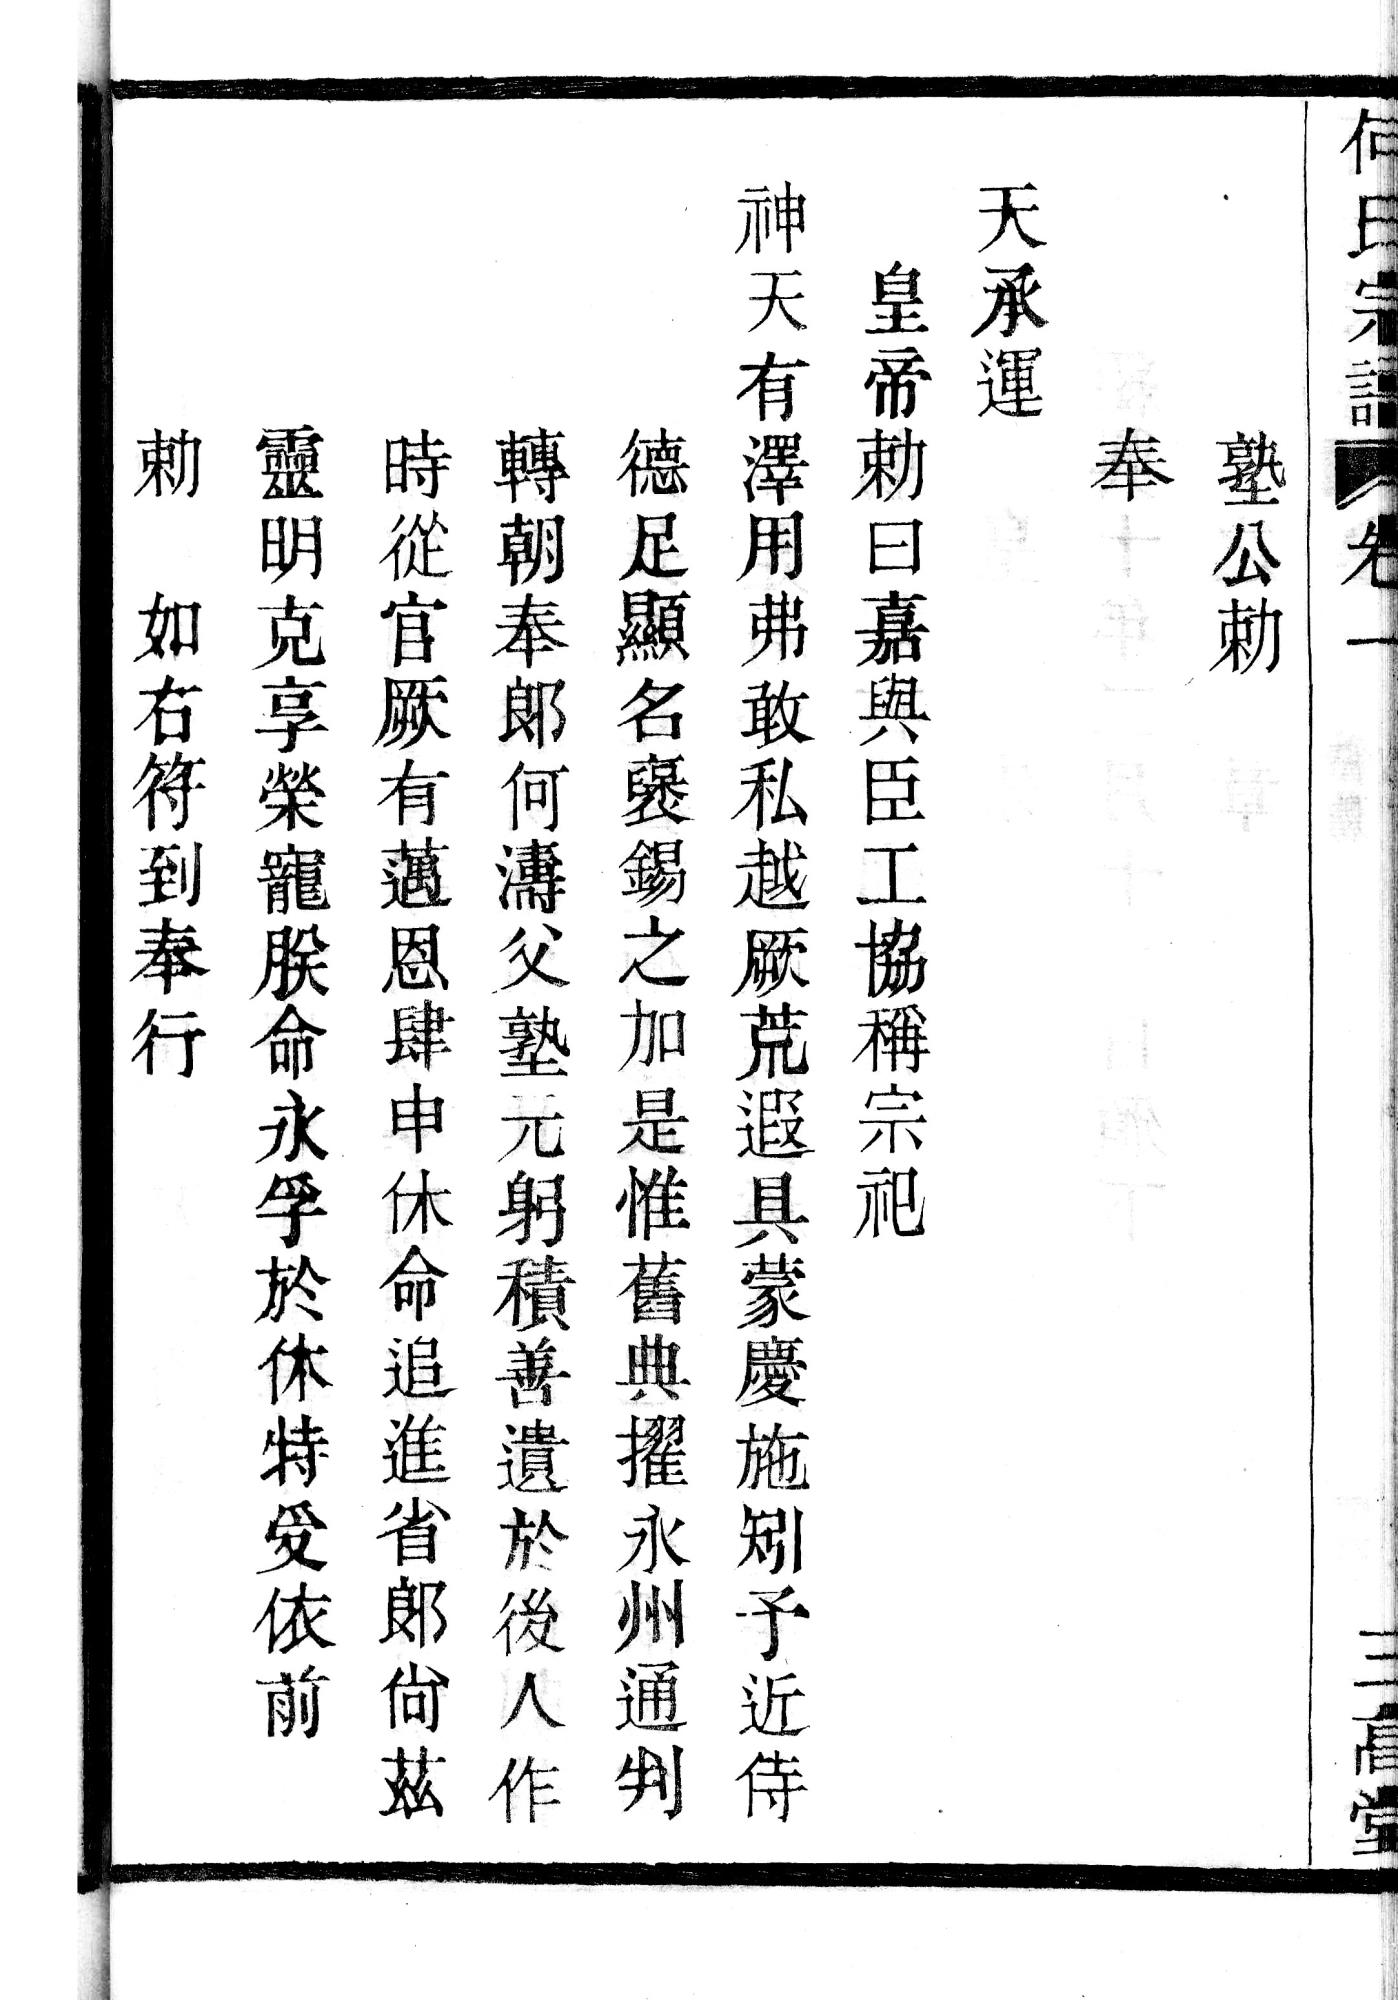 何氏宗譜 卷一 三高堂
塾公勅
奉
天承運
皇帝勅曰嘉與臣工協稱宗祀
神天有澤用弗敢私越厥荒遐具蒙慶施矧予近侍
德足顯名褒錫之加是惟舊典擢永州通判
轉朝奉郎何濤父塾元躬積善遺於後人作
時從官厥有邁恩肆申休命追進省郎尙茲
靈明克享榮寵朕命永孚於休特受依前
勅 如右符到奉行